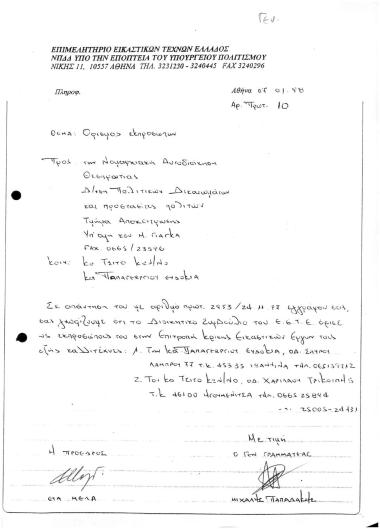 Γεν.
ΕΠΙΜΕΛΗΤΗΡΙΟ ΕΙΚΑΣΤΙΚΩΝ ΤΕΧΝΩΝ ΕΛΛΑΔΟΣ
ΝΠΔΔ ΥΠΟ ΤΗΝ ΕΠΟΠΤΕΙΑ ΤΟΥ ΥΠΟΥΡΓΕΙΟΥ ΠΟΛΙΤΙΣΜΟΥ
ΝΙΚΗΣ 11, 10557 ΑΘΗΝΑ ΤΗΛ. 3231230 - 3240445 FAX 3240296
Πληροφ.
Αθήνα 01.98
Αρ. Πρωτ. 10
ΘΕΜΑ: Ορισμός εκπροσώπων
Προς την Νομαρχιακή Αυτοδιοίκηση
Θεσπρωτίας
Δ/νση Πολιτικών Δικαιωμάτων
και προστασίας πολιτών
Τμήμα Αποκέντρωσης
Υπ' όψη του Η. Γιάγκα
FAX. 0665/23596
κοιν: κο Τσίτο Κων/νο
κα Παπαγεωργίου Ευδοκία
Σε απάντηση του με αριθμό πρωτ. 2953/24 11 εγγράφου σας,
σας γνωρίζουμε ότι το Διοικητικό Συμβούλιο του Ε.Ε.Τ.Ε όρισε
ως εκπροσώπους του στην Επιτροπή κρίσης Εικαστικών Έργων τους
εξής καλλιτέχνες: 1. Την κα Παπαγεωργίου Ευδοκία, οδ. Σπύρου
Λάμπρου Τ.Κ. 45333 Ιωάννινα τηλ.
2. Το κο Τσίτο Κων/νο, οδ. Χαριλάου Τρικούπη
Τ.Κ 46100 Ηγουμενίτσα τηλ. 0665 25844
25005-24431
Με τιμή
Η ΠΡΟΕΔΡΟΣ
Ο ΓΕΝ ΓΡΑΜΜΑΤΕΑΣ
ΕΥΑ ΜΕΛΑ
ΜΙΧΑΛΗΣ ΠΑΠΑΔΑΚΗΣ